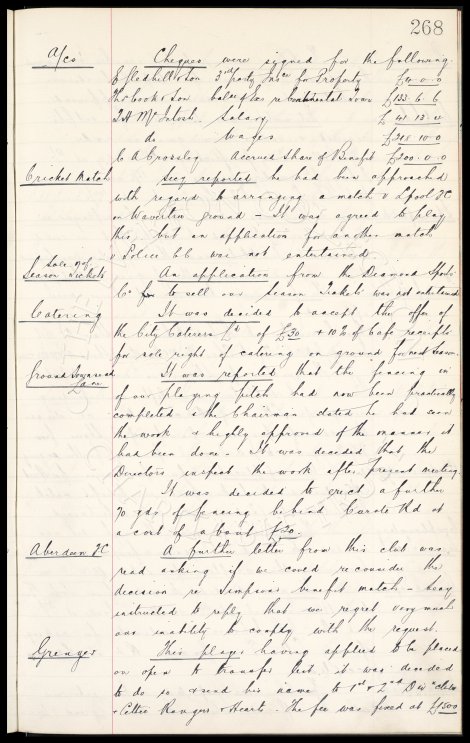 268
a/cs Cheques were signed for the following.
E Gledhill & Son 3rd party Insce for Property £4. 0. 0
Thos Cook & Son balce of Exs re Continental Tour £123. 6. 6
T. H. McIntosh. Salary £41. 13. 0
do Wages £218. 10. 0
C A Crossley Accrued Share of Benefit £200. 0. 0
Cricket Match Secy reported he had been approached
with regard to arranging a match v L'pool FC
on Wavertree ground – It was agreed to play
this, but an application for another match
v Police CC was not entertained.
Sale of Season Tickets An application from the Diamond Sports
Co to sell our Season Tickets was not entertained
Catering It was decided to accept the offer of
the City Caterers Ld of £30 + 10% of Cafe receipts
for sole right of catering on ground for next season.
Ground Goodison Rd Lane It was reported that the fencing in
of our playing pitch had now been practically
completed & the Chairman stated he had seen
the work & highly approved of the manner it
had been done. It was decided that the
Directors inspect the work after present meeting.
It was decided to erect a further
70 yds of fencing behind Goal at
a cost of about £20.
Aberdeen FC A further letter from this club was
read asking if we could reconsider the
decision re Simpsons benefit match – Secy
instructed to reply that we regret very much
our inability to comply with the request.
Grenyer This player having applied to be placed
on open to transfer list it was decided
to do so & send his name to 1st & 2nd Div clubs
& Celtic Rangers & Hearts. The fee was fixed at £1500